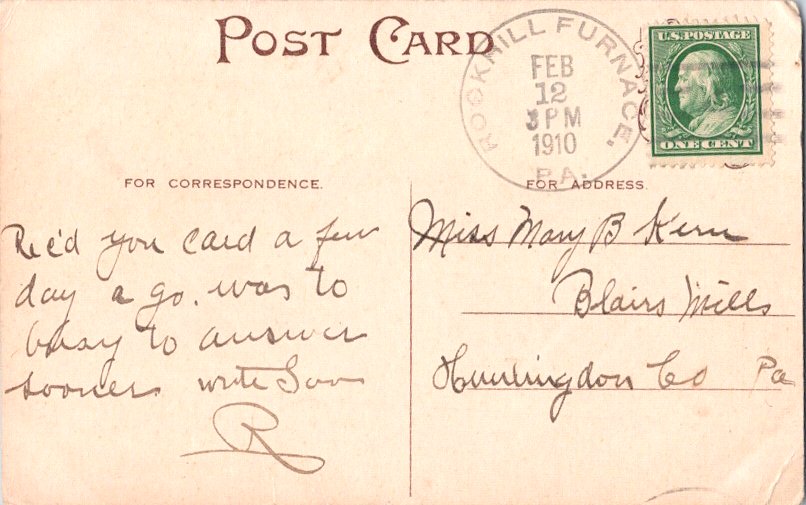 POST CARD
ROCKHILL FURNACE,
FEB
12
3 PM
1910
PA.
U.S. POSTAGE
ONE CENT
FOR CORRESPONDENCE.
FOR ADDRESS.
Rec'd you card a few
day a go. was to
busy to answer
sooner write Soon
R
Miss Mary B Kern
Blairs Mills
Huntingdon Co Pa